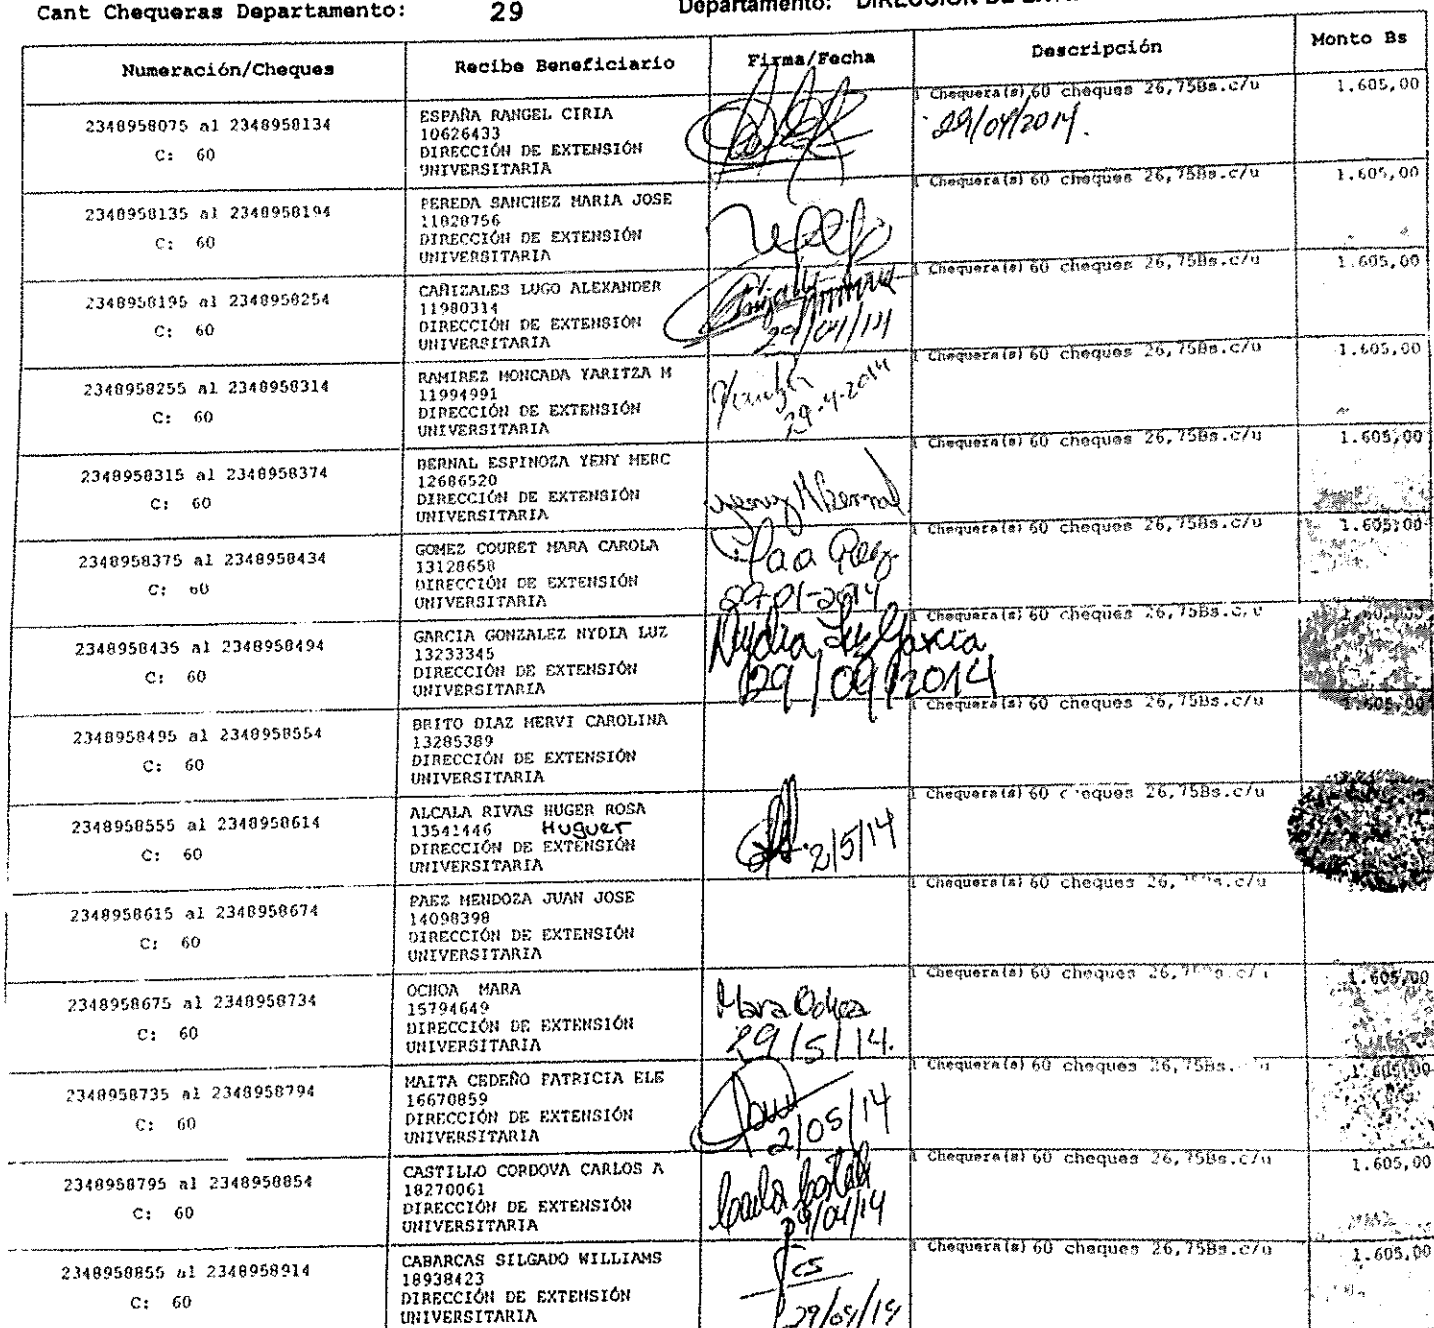 Cant Chequeras Departamento: 29 Departamento: DIRECCIÓN DE
Numeración/Cheques Recibe Beneficiario Firma/Fecha Descripción Monto Bs
2348958075 al 2348958134
C: 60
ESPAÑA RANGEL CIRIA
10626433
DIRECCIÓN DE EXTENSIÓN
UNIVERSITARIA
1 Chequera(s) 60 cheques 26,75Bs.c/u
29/04/2014.
1.605,00
2348958135 al 2348958194
C: 60
PEREDA SANCHEZ MARIA JOSE
11828756
DIRECCIÓN DE EXTENSIÓN
UNIVERSITARIA
1 Chequera(s) 60 cheques 26,75Bs.c/u
1.605,00
2348958195 al 2348958254
C: 60
CAÑIZALES LUGO ALEXANDER
11980314
DIRECCIÓN DE EXTENSIÓN
UNIVERSITARIA
29/04/14
1 Chequera(s) 60 cheques 26,75Bs.c/u
1.605,00
2348958255 al 2348958314
C: 60
RAMIREZ MONCADA YARITZA M
11994991
DIRECCIÓN DE EXTENSIÓN
UNIVERSITARIA
29.4.2014
1 Chequera(s) 60 cheques 26,75Bs.c/u
1.605,00
2348958315 al 2348958374
C: 60
BERNAL ESPINOZA YENY MERC
12686520
DIRECCIÓN DE EXTENSIÓN
UNIVERSITARIA
Yeny M Bernal
1 Chequera(s) 60 cheques 26,75Bs.c/u
1.605,00
2348958375 al 2348958434
C: 60
GOMEZ COURET MARA CAROLA
13128658
DIRECCIÓN DE EXTENSIÓN
UNIVERSITARIA
1 Chequera(s) 60 cheques 26,75Bs.c/u
1.605,00
2348958435 al 2348958494
C: 60
GARCIA GONZALEZ NYDIA LUZ
13233345
DIRECCIÓN DE EXTENSIÓN
UNIVERSITARIA
Nydia Luz Garcia
29/04/2014
1 Chequera(s) 60 cheques 26,75Bs.c/u
1.605,00
2348958495 al 2348958554
C: 60
BRITO DIAZ MERVI CAROLINA
13285389
DIRECCIÓN DE EXTENSIÓN
UNIVERSITARIA
1 Chequera(s) 60 cheques 26,75Bs.c/u
1.605,00
2348958555 al 2348958614
C: 60
ALCALA RIVAS HUGER ROSA
13541446 Huguer
DIRECCIÓN DE EXTENSIÓN
UNIVERSITARIA
2/5/14
1 Chequera(s) 60 cheques 26,75Bs.c/u
2348958615 al 2348958674
C: 60
PAEZ MENDOZA JUAN JOSE
14098398
DIRECCIÓN DE EXTENSIÓN
UNIVERSITARIA
1 Chequera(s) 60 cheques
2348958675 al 2348958734
C: 60
OCHOA MARA
15794649
DIRECCIÓN DE EXTENSIÓN
UNIVERSITARIA
Mara Ochoa
29/5/14.
1 Chequera(s) 60 cheques
1.605,00
2348958735 al 2348958794
C: 60
MAITA CEDEÑO PATRICIA ELE
16670859
DIRECCIÓN DE EXTENSIÓN
UNIVERSITARIA
2/05/14
1 Chequera(s) 60 cheques 26,75Bs.
1.605,00
2348958795 al 2348958854
C: 60
CASTILLO CORDOVA CARLOS A
18270061
DIRECCIÓN DE EXTENSIÓN
UNIVERSITARIA
29/04/14
1 Chequera(s) 60 cheques 26,75Bs.c/u
1.605,00
2348958855 al 2348958914
C: 60
CABARCAS SILGADO WILLIAMS
18938423
DIRECCIÓN DE EXTENSIÓN
UNIVERSITARIA
29/04/14
1 Chequera(s) 60 cheques 26,75Bs.c/u
1.605,00